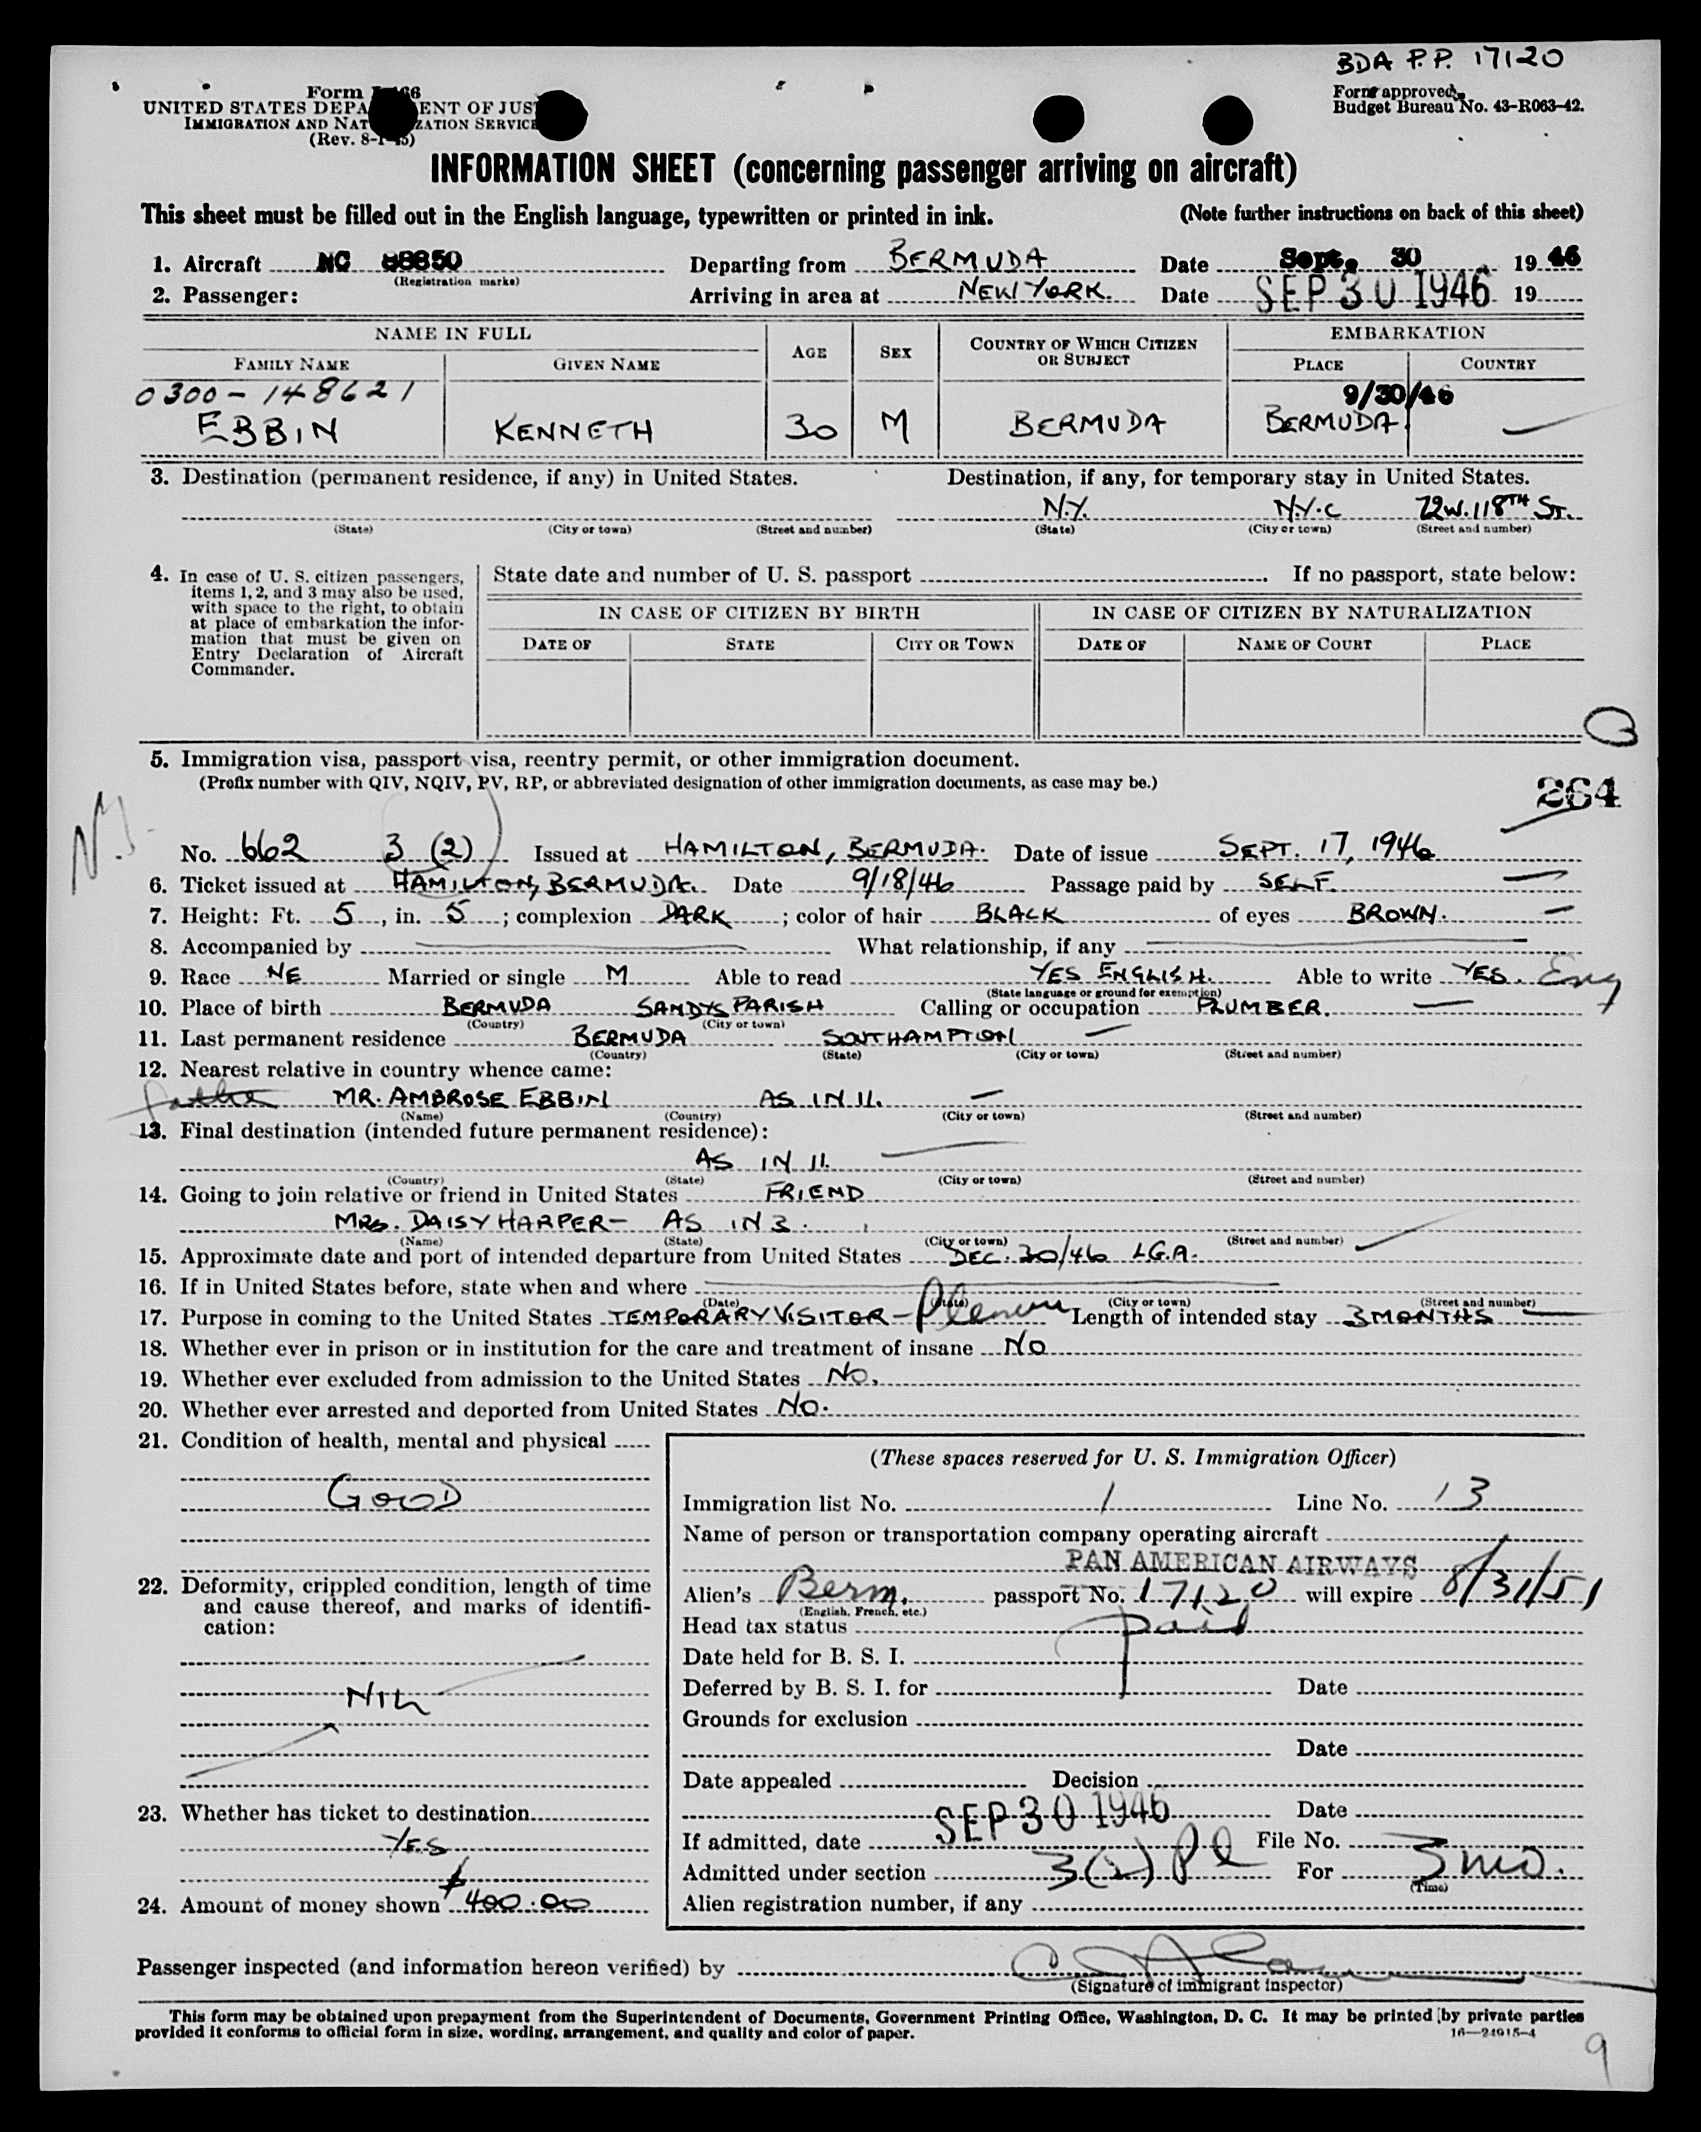 BDA P.P. 17120
Form
UNITED STATES DEPARTMENT OF JUSTICE
IMMIGRATION AND NATURALIZATION SERVICE
(Rev. 8-1-45)
Form approved.
Budget Bureau No. 43-R063-42.
INFORMATION SHEET (concerning passenger arriving on aircraft)
This sheet must be filled out in the English language, typewritten or printed in ink. (Note further instructions on back of this sheet)
1. Aircraft NC 88850 Departing from BERMUDA Date Sept. 30 1946
(Registration marks)
2. Passenger: Arriving in area at NEW YORK. Date SEP 30 1946 19
NAME IN FULL AGE SEX COUNTRY OF WHICH CITIZEN OR SUBJECT EMBARKATION
FAMILY NAME GIVEN NAME PLACE COUNTRY
0300-148621 9/30/46
EBBIN KENNETH 30 M BERMUDA BERMUDA —
3. Destination (permanent residence, if any) in United States. Destination, if any, for temporary stay in United States.
N.Y. N.Y.C 72W.118TH ST.
(State) (City or town) (Street and number) (State) (City or town) (Street and number)
4. In case of U. S. citizen passengers, items 1, 2, and 3 may also be used, with space to the right, to obtain at place of embarkation the information that must be given on Entry Declaration of Aircraft Commander.
State date and number of U. S. passport . If no passport, state below:
IN CASE OF CITIZEN BY BIRTH IN CASE OF CITIZEN BY NATURALIZATION
DATE OF STATE CITY OR TOWN DATE OF NAME OF COURT PLACE
5. Immigration visa, passport visa, reentry permit, or other immigration document.
(Prefix number with QIV, NQIV, PV, RP, or abbreviated designation of other immigration documents, as case may be.)
264
No. 662 3 (2) Issued at HAMILTON, BERMUDA. Date of issue SEPT. 17, 1946
6. Ticket issued at HAMILTON, BERMUDA. Date 9/18/46 Passage paid by SELF.
7. Height: Ft. 5, in. 5; complexion DARK; color of hair BLACK of eyes BROWN.
8. Accompanied by What relationship, if any
9. Race NE Married or single M Able to read YES ENGLISH. Able to write YES. Eng
(State language or ground for exemption)
10. Place of birth BERMUDA SANDYS PARISH Calling or occupation PLUMBER.
(Country) (City or town)
11. Last permanent residence BERMUDA SOUTHAMPTON
(Country) (State) (City or town) (Street and number)
12. Nearest relative in country whence came:
father MR. AMBROSE EBBIN AS IN 11.
(Name) (Country) (City or town) (Street and number)
13. Final destination (intended future permanent residence):
AS IN 11.
(Country) (State) (City or town) (Street and number)
14. Going to join relative or friend in United States FRIEND
MRS. DAISY HARPER- AS IN 3.
(Name) (State) (City or town) (Street and number)
15. Approximate date and port of intended departure from United States DEC. 30/46 L.G.A.
16. If in United States before, state when and where
(Date) (State) (City or town) (Street and number)
17. Purpose in coming to the United States TEMPORARY VISITOR- Length of intended stay 3 MONTHS
18. Whether ever in prison or in institution for the care and treatment of insane NO
19. Whether ever excluded from admission to the United States NO.
20. Whether ever arrested and deported from United States NO.
21. Condition of health, mental and physical
GOOD
22. Deformity, crippled condition, length of time and cause thereof, and marks of identification:
NIL
23. Whether has ticket to destination
YES
24. Amount of money shown $400.00
(These spaces reserved for U. S. Immigration Officer)
Immigration list No. 1 Line No. 13
Name of person or transportation company operating aircraft
PAN AMERICAN AIRWAYS
Alien's Berm. passport No. 17120 will expire 8/31/51
(English, French, etc.)
Head tax status paid
Date held for B. S. I.
Deferred by B. S. I. for Date
Grounds for exclusion
Date
Date appealed Decision
Date
If admitted, date SEP 30 1946 File No.
Admitted under section 3(2) Pl For 3 mo.
(Time)
Alien registration number, if any
Passenger inspected (and information hereon verified) by
(Signature of immigrant inspector)
This form may be obtained upon prepayment from the Superintendent of Documents, Government Printing Office, Washington, D. C. It may be printed by private parties
provided it conforms to official form in size, wording, arrangement, and quality and color of paper.
16—24915-4
9